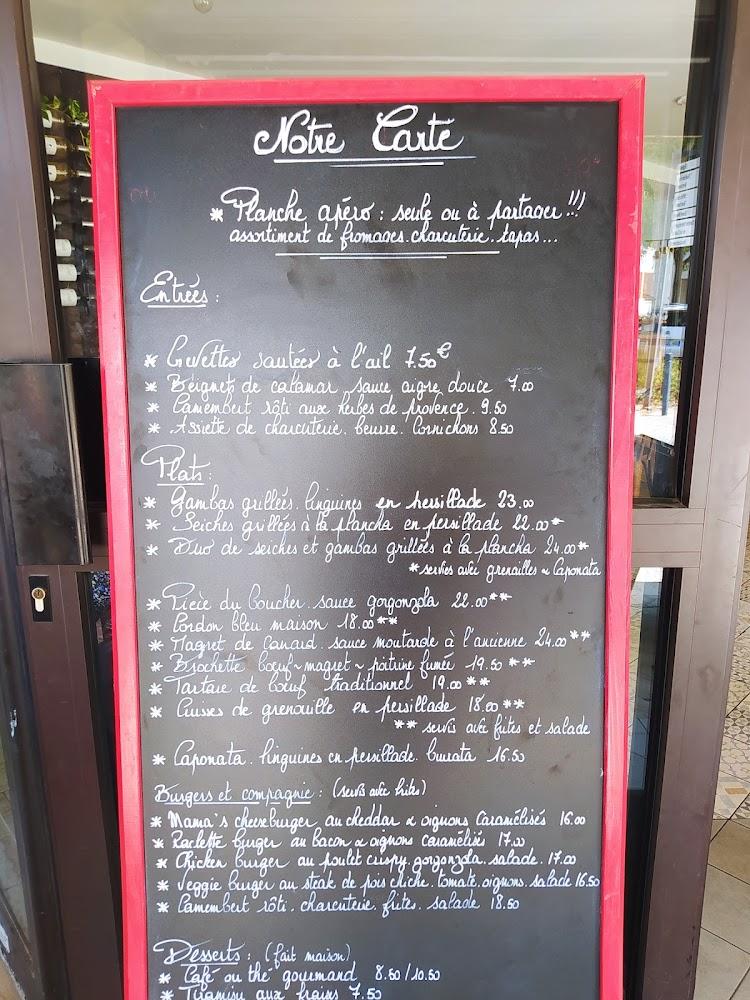 Notre Carte
* Planche apéro : seule ou à partager !!!
assortiment de fromages. charcuterie. tapas...
Entrées :
* Crevettes sautées à l'ail 7.50€
* Beignets de calamar sauce aigre douce 7.00
* Camembert rôti aux herbes de provence. 9.50
* Assiette de charcuterie. beurre. Cornichons 8.50
Plats :
* Gambas grillées. linguines en persillade 23.00
* Seiches grillées à la plancha en persillade 22.00*
* Duo de seiches et gambas grillées à la plancha 24.00*
* servies avec grenailles & Caponata
* Pièce du boucher. sauce gorgonzola 22.00**
* Cordon bleu maison 18.00**
* Magret de Canard. sauce moutarde à l'ancienne 24.00**
* Brochette bœuf~magret~poitrine fumée 19.50**
* Tartare de bœuf traditionnel 19.00**
* Cuisses de grenouille en persillade 18.00**
** servis avec frites et salade
* Caponata. linguines en persillade. burrata 16.50
Burgers et compagnie : (servis avec frites)
* Mama's cheeseburger au cheddar & oignons caramélisés 16.00
* Raclette burger au bacon & oignons caramélisés 17.00
* Chicken burger au poulet crispy. gorgonzola. salade. 17.00
* Veggie burger au steak de pois chiche. tomate. oignons. salade 16.50
* Camembert rôti. charcuterie. frites. salade 18.50
Desserts : (fait maison)
* Café ou thé gourmand 8.50/10.50
* Tiramisu aux fraises 7.50